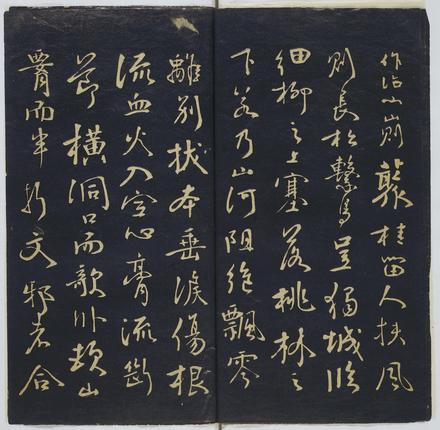 作冶小山則叢桂留人扶風
則長松繫馬豈獨城臨
細柳之上塞落桃林之
下若乃山河阻絕飄零
離別拔本垂淚傷根
流血火入空心膏流斷
節橫洞口而欹臥頓山
腰而半折文邪者合